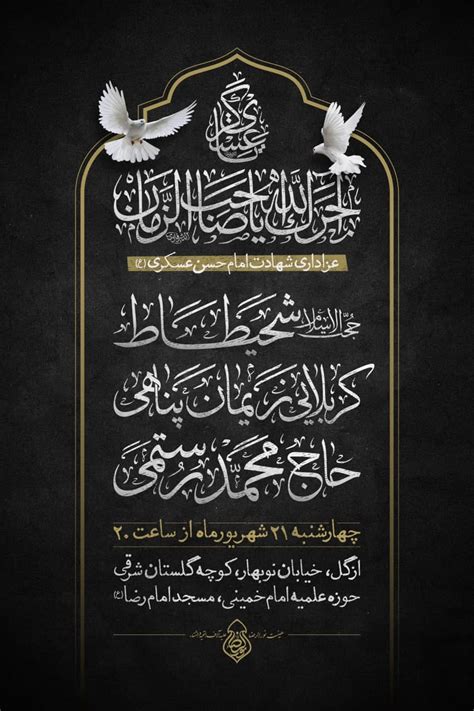 عسکری
آجرک الله یا صاحب الزمان
عزاداری شهادت امام حسن عسکری (ع)
حجة الاسلام شحیطاط
کربلایی نریمان پناهی
حاج محمد رستمی
چهارشنبه ۲۱ شهریور ماه از ساعت ۲۰
ازگل، خیابان نوبهار، کوچه گلستان شرقی
حوزه علمیه امام خمینی، مسجد امام رضا (ع)